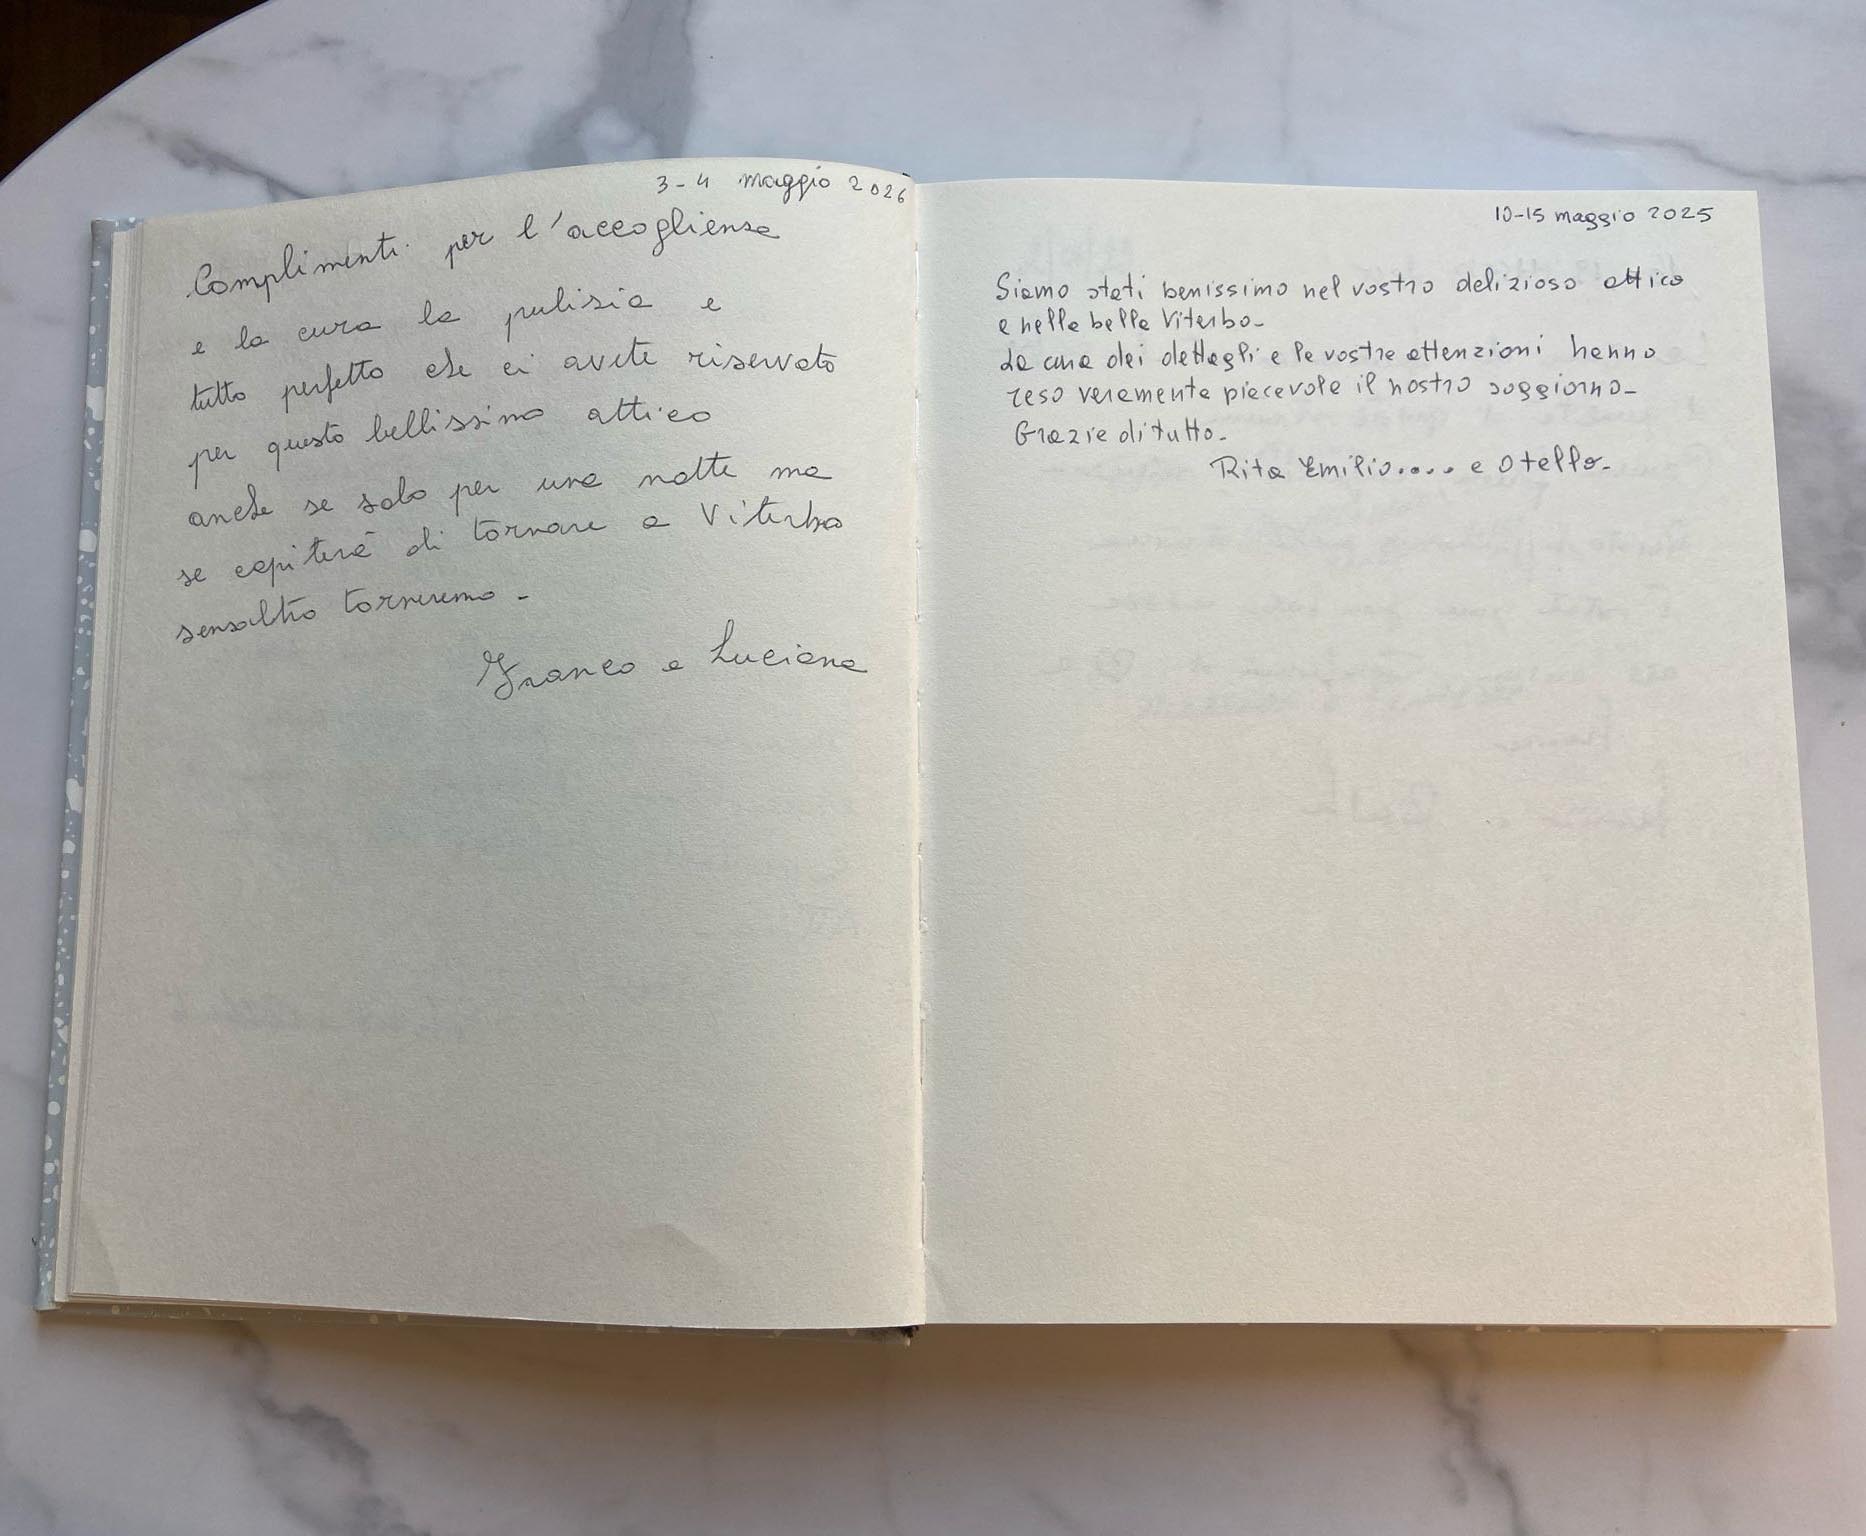 3-4 maggio 2026
Complimenti per l'accogliensa
e la cura la pulisia e
tutto perfetto che ci avete riservato
per questo bellissimo attico
anche se solo per una notte ma
se capiterà di tornare a Viterbo
sensaltro torneremo -
Franco e Luciana
10-15 maggio 2025
Siamo stati benissimo nel vostro delizioso attico
e nella bella Viterbo-
La cura dei dettagli e le vostre attenzioni hanno
reso veramente piacevole il nostro soggiorno-
Grazie di tutto-
Rita Emilio.... e Otello-